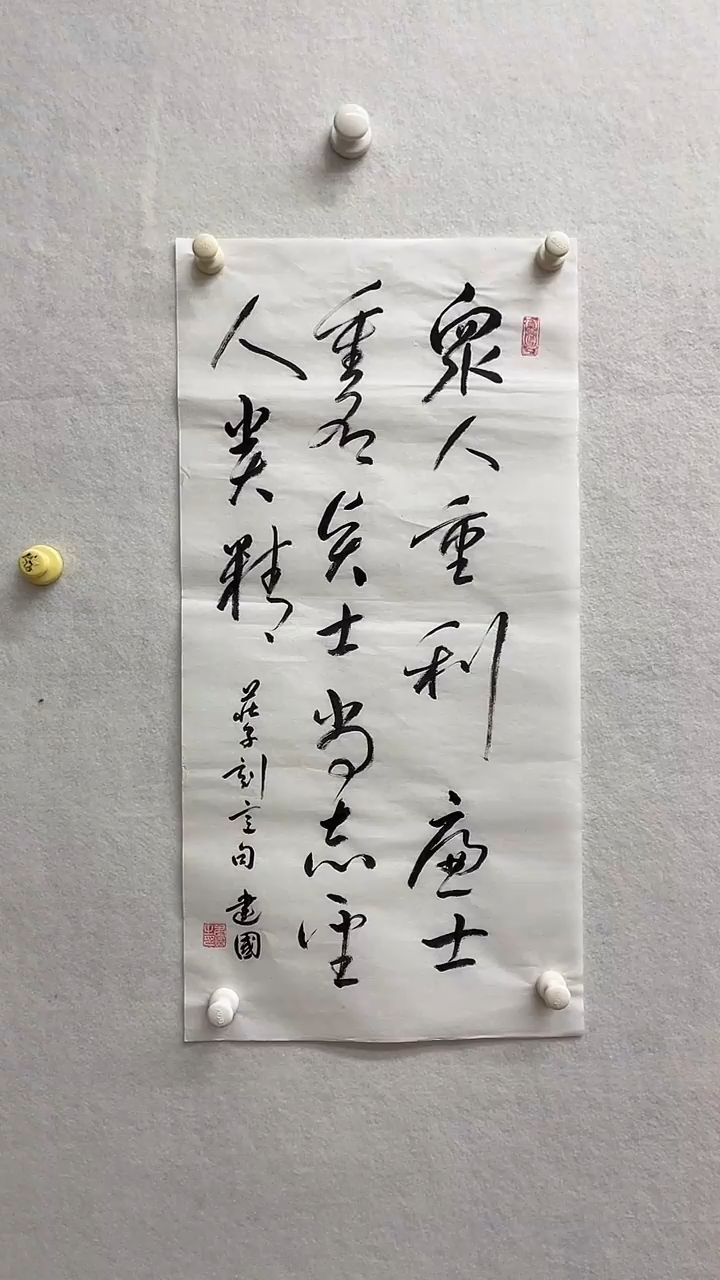 衆人重利廉士
重名賢士尚志聖
人貴精
莊子刻意句 建國